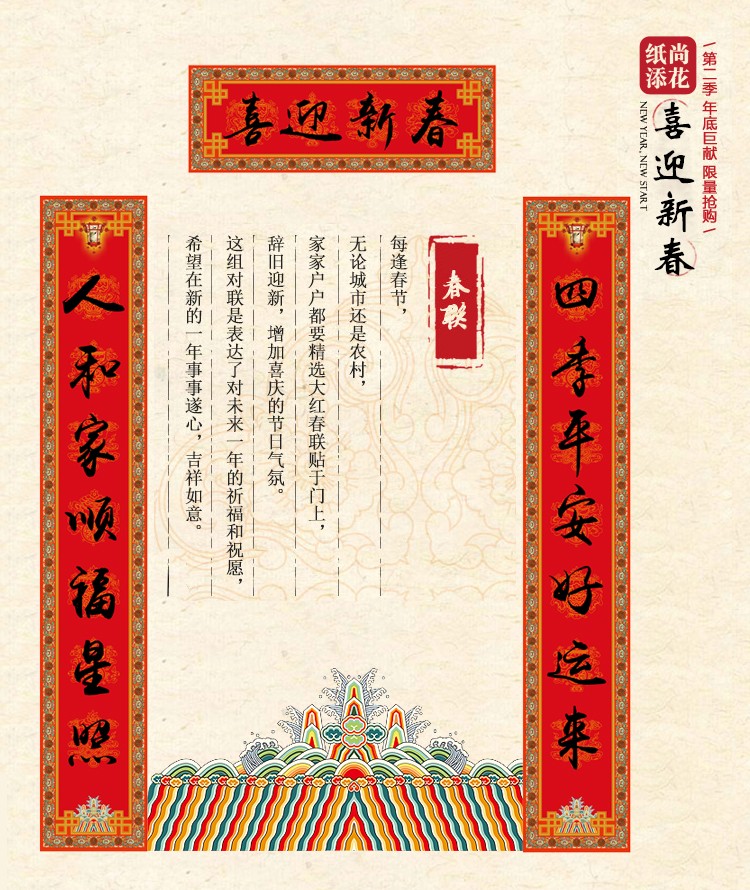 喜迎新春
四季平安好运来
人和家顺福星照
春联
每逢春节，
无论城市还是农村，
家家户户都要精选大红春联贴于门上，
辞旧迎新，增加喜庆的节日气氛。
这组对联是表达了对未来一年的祈福和祝愿，
希望在新的一年事事遂心，吉祥如意。
第二季 年底巨献 限量抢购
尚花
纸添
喜迎新春
NEW YEAR, NEW START